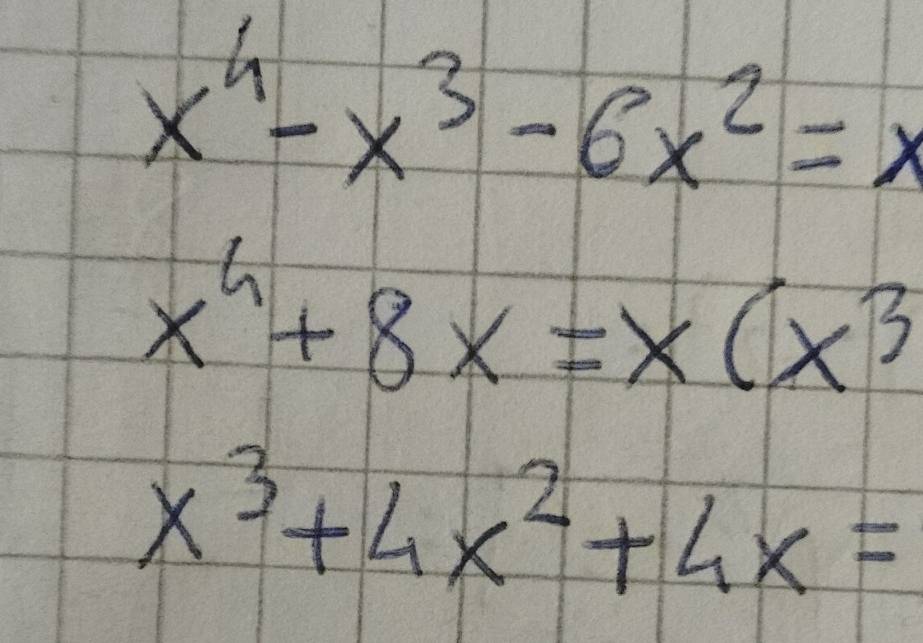 x⁴ - x³ - 6x² = x
x⁴ + 8x = x(x³
x³ + 4x² + 4x =